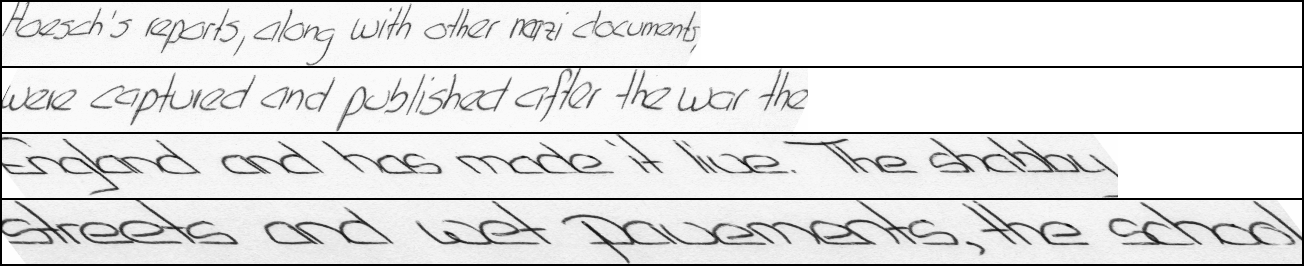 Hoesch's reports, along with other nazi documents,
were captured and published after the war the
England and has made it live. The shabby
streets and wet pavements, the school